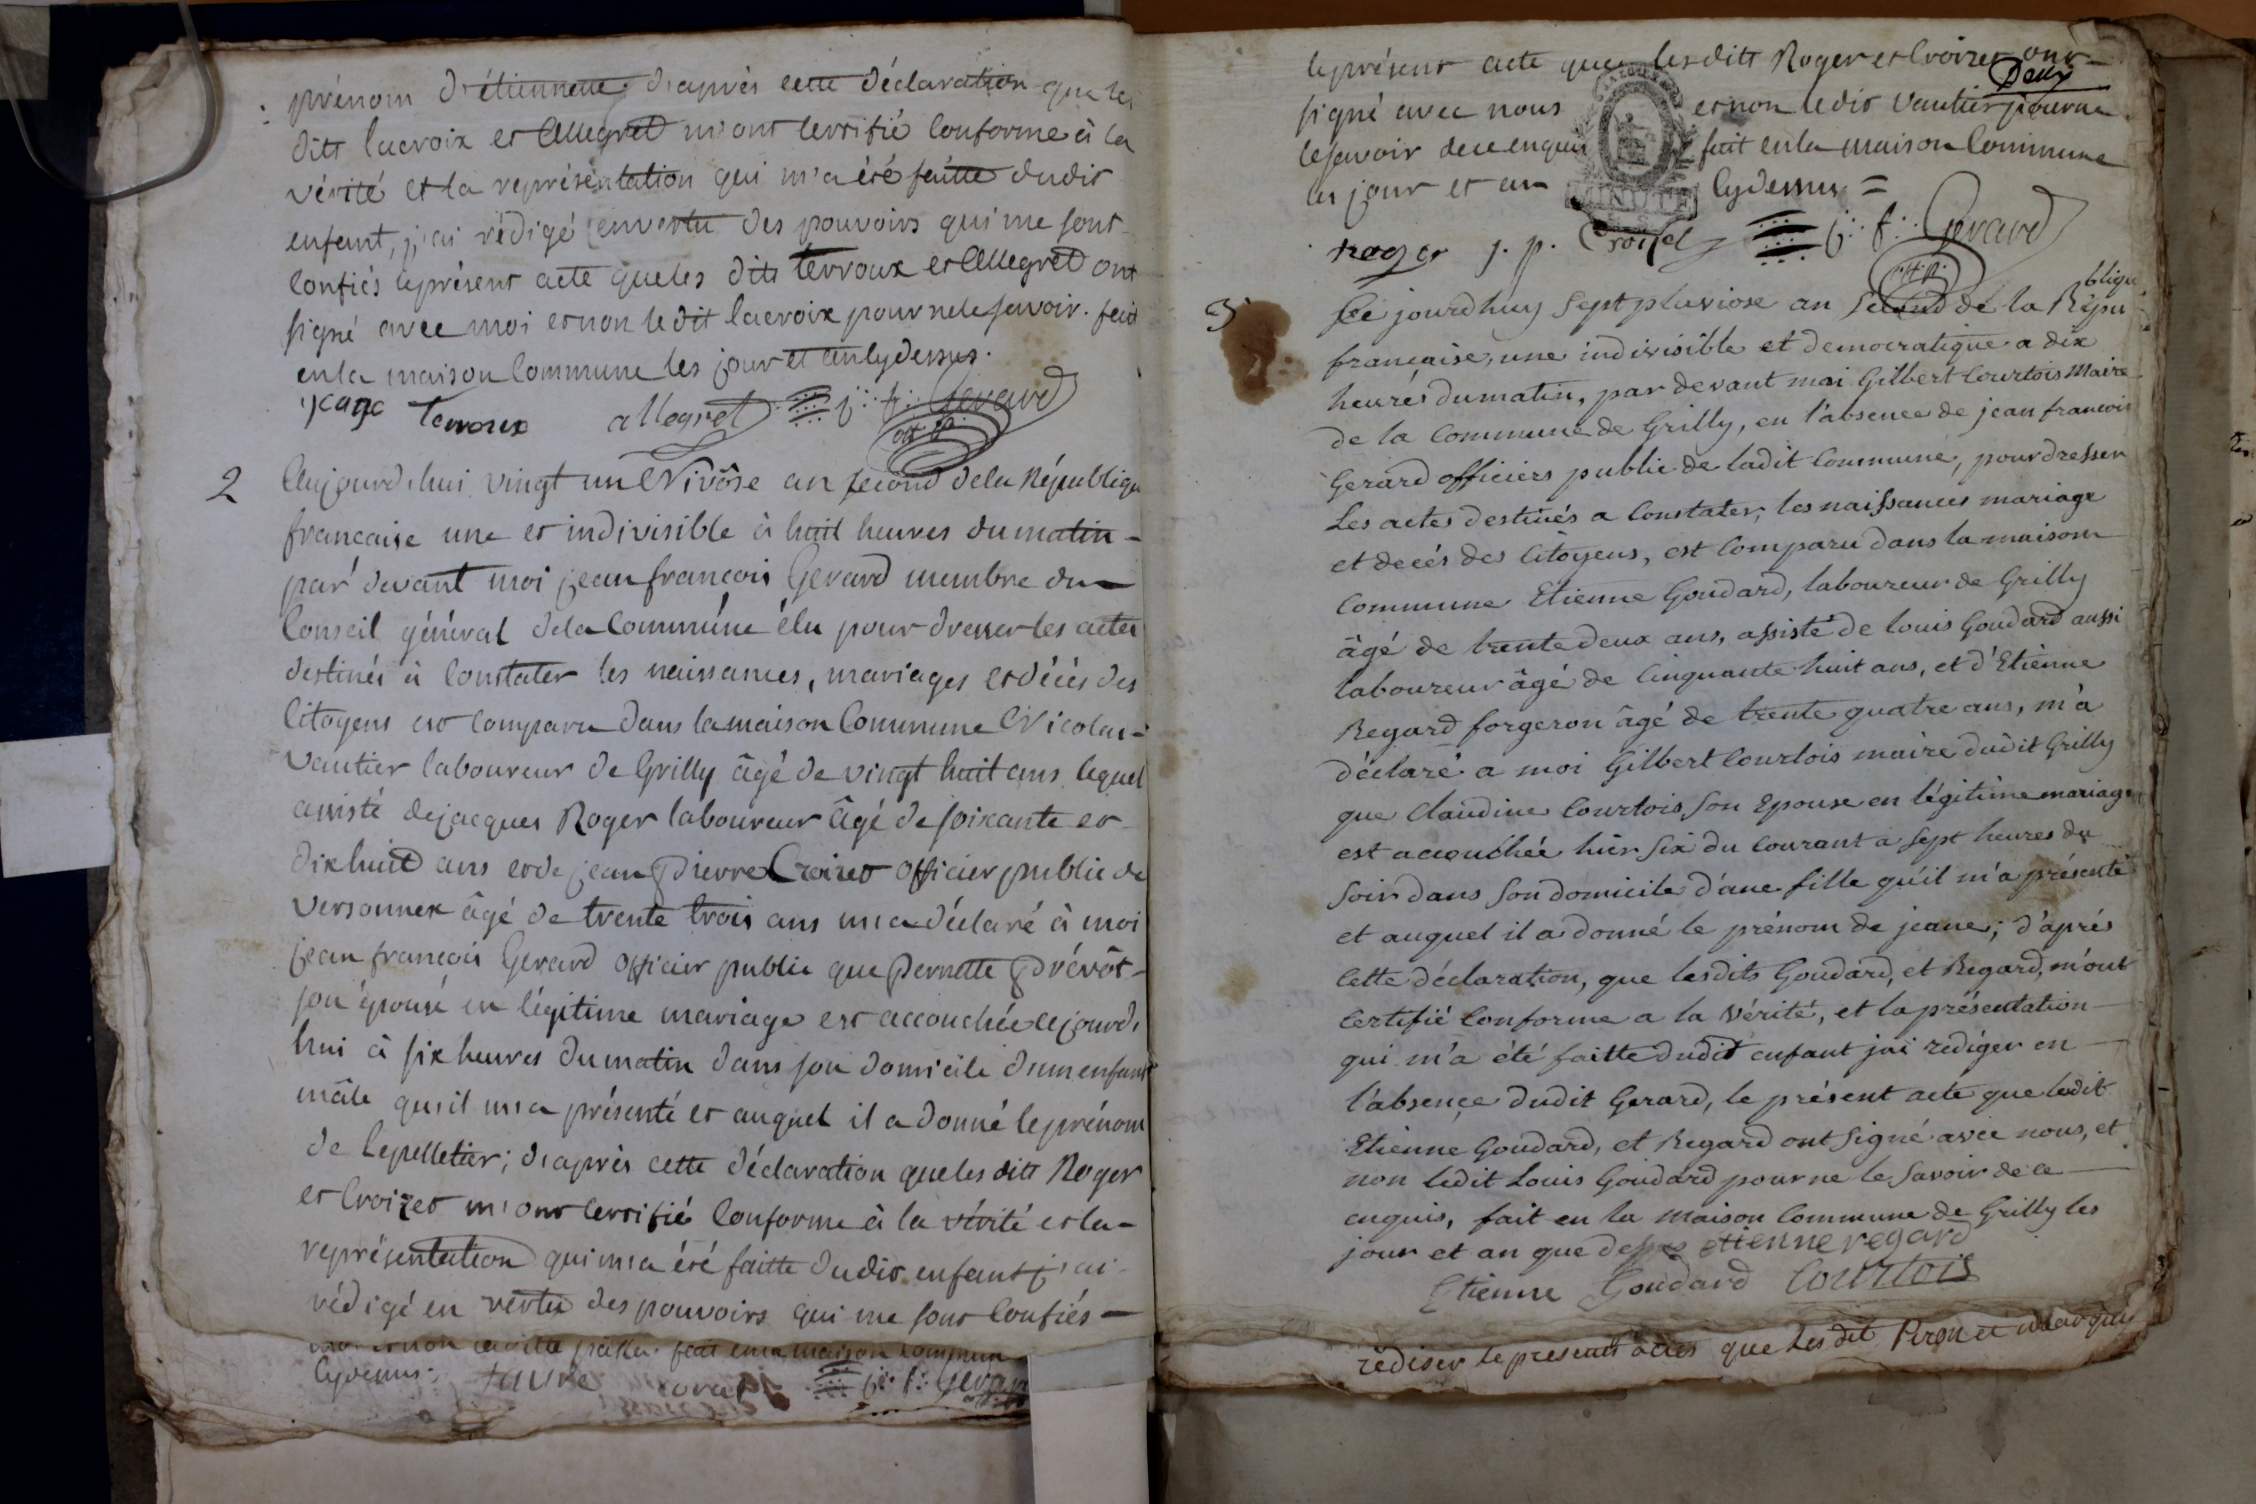 prénom d'étiennette d'après cette déclaration que les
dits lacroix et Allegret m'ont certifié conforme à la
vérité et la représentation qui m'a été faitte dudit
enfant, j'ai rédigé en vertu des pouvoirs qui me sont
confiés le présent acte que les dits terroux et Allegret ont
signé avec moi et non le dit lacroix pour ne le savoir. fait
en la maison Commune les jour et an cydessus.
terroux allegret j: f: Gerard
off. p.
2
Aujourd'hui vingt un Nivôse an second de la République
francaise une et indivisible à huit heures du matin -
par devant moi jean francois Gerard membre du
Conseil général de la Commune élu pour dresser les actes
destinés à constater les naissances, mariages et décès des
Citoyens est comparu dans la maison Commune Nicolas
vautier laboureur de Grilly âgé de vingt huit ans lequel
assisté de jacques Roger laboureur âgé de soixante et
dix huit ans et de jean Pierre Croizet officier public de
versonnex âgé de trente trois ans m'a déclaré à moi
jean francois Gerard officier public que Pernette Prévôt
son épouse en légitime mariage est accouchée cejourd'
hui à six heures du matin dans son domicile d'un enfant
mâle qu'il m'a présenté et auquel il a donné le prénom
de lepelletier; d'après cette déclaration que les dits Roger
et Croizet m'ont certifié conforme à la vérité et la -
représentation qui m'a été faitte dudit enfant j'ai
rédigé en vertu des pouvoirs qui me sont confiés -
fait en la maison commun
cydessus. j: f: Gerard
le présent acte que les dits Roger et Croizet ont
Deux
signé avec nous et non le dit vautier pour ne
le savoir de ce enquis fait en la maison Commune
les jour et an cydessus =
MINUTE
roger j. p. Croiset j: f: Gerard
off. p.
3
Ce jourdhuy sept pluviose an second de la Répu
blique
française, une indivisible et democratique a dix
heures du matin, par devant moi Gilbert Courtois Maire
de la Commune de Grilly, en l'absence de jean francois
Gerard officiers public de ladit Commune, pour dresser
Les actes destinés a Constater, les naissances mariage
et decés des Citoyens, est Comparu dans la maison
Commune Etienne Goudard, laboureur de Grilly
âgé de trente deux ans, assisté de louis Goudard aussi
laboureur âgé de Cinquante huit ans, et d'Etienne
Regard forgeron âgé de trente quatre ans, m'a
déclaré a moi Gilbert Courtois maire dudit Grilly
que Claudine Courtois son Epouse en légitime mariage
est accouchée hier six du Courant a sept heures du
soir dans son domicile d'une fille qu'il m'a présenté
et auquel il a donné le prénom de jeane; d'aprés
Cette déclaration, que lesdits Goudard, et Regard, m'ont
Certifié Conforme a la vérité, et la présentation
qui m'a été faitte dudit enfant jai rediger en
l'absençe dudit Gerard, le présent acte que ledit
Etienne Goudard, et Regard ont signé avec nous, et
non ledit Louis Goudard pour ne le savoir de ce
enquis, fait en la Maison Commune de Grilly les
jour et an que dessus etienne regard
Etienne Goudard Courtois
rédiser le present actes que les dit Peron et